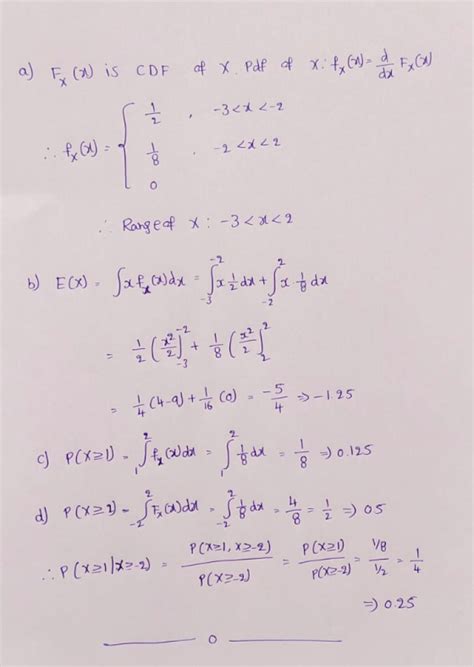 a) F_X(x) is CDF of X. Pdf of x: f_X(x) = d/dx F_X(x)
∴ f_X(x) = { 1/2 , -3<x<-2
1/8 , -2<x<2
0
∴ Range of x : -3<x<2
b) E(x) = ∫x f_X(x)dx = ∫_{-3}^{-2} x 1/2 dx + ∫_{-2}^{2} x · 1/8 dx
= 1/2 (x²/2]_{-3}^{-2} + 1/8 (x²/2]_{2}^{2}
= 1/4 (4-9) + 1/16 (0) = -5/4 ⇒ -1.25
c) P(X≥1) = ∫_1^2 f_X(x)dx = ∫_1^2 1/8 dx = 1/8 ⇒ 0.125
d) P(X≥2) = ∫_{-2}^{2} F_X(x)dx = ∫_{-2}^{2} 1/8 dx = 4/8 = 1/2 ⇒ 05
∴ P(X≥1|X≥-2) = P(X≥1, X≥-2)/P(X≥-2) = P(X≥1)/P(X≥-2) = 1/8/1/2 = 1/4
⇒ 0.25
0